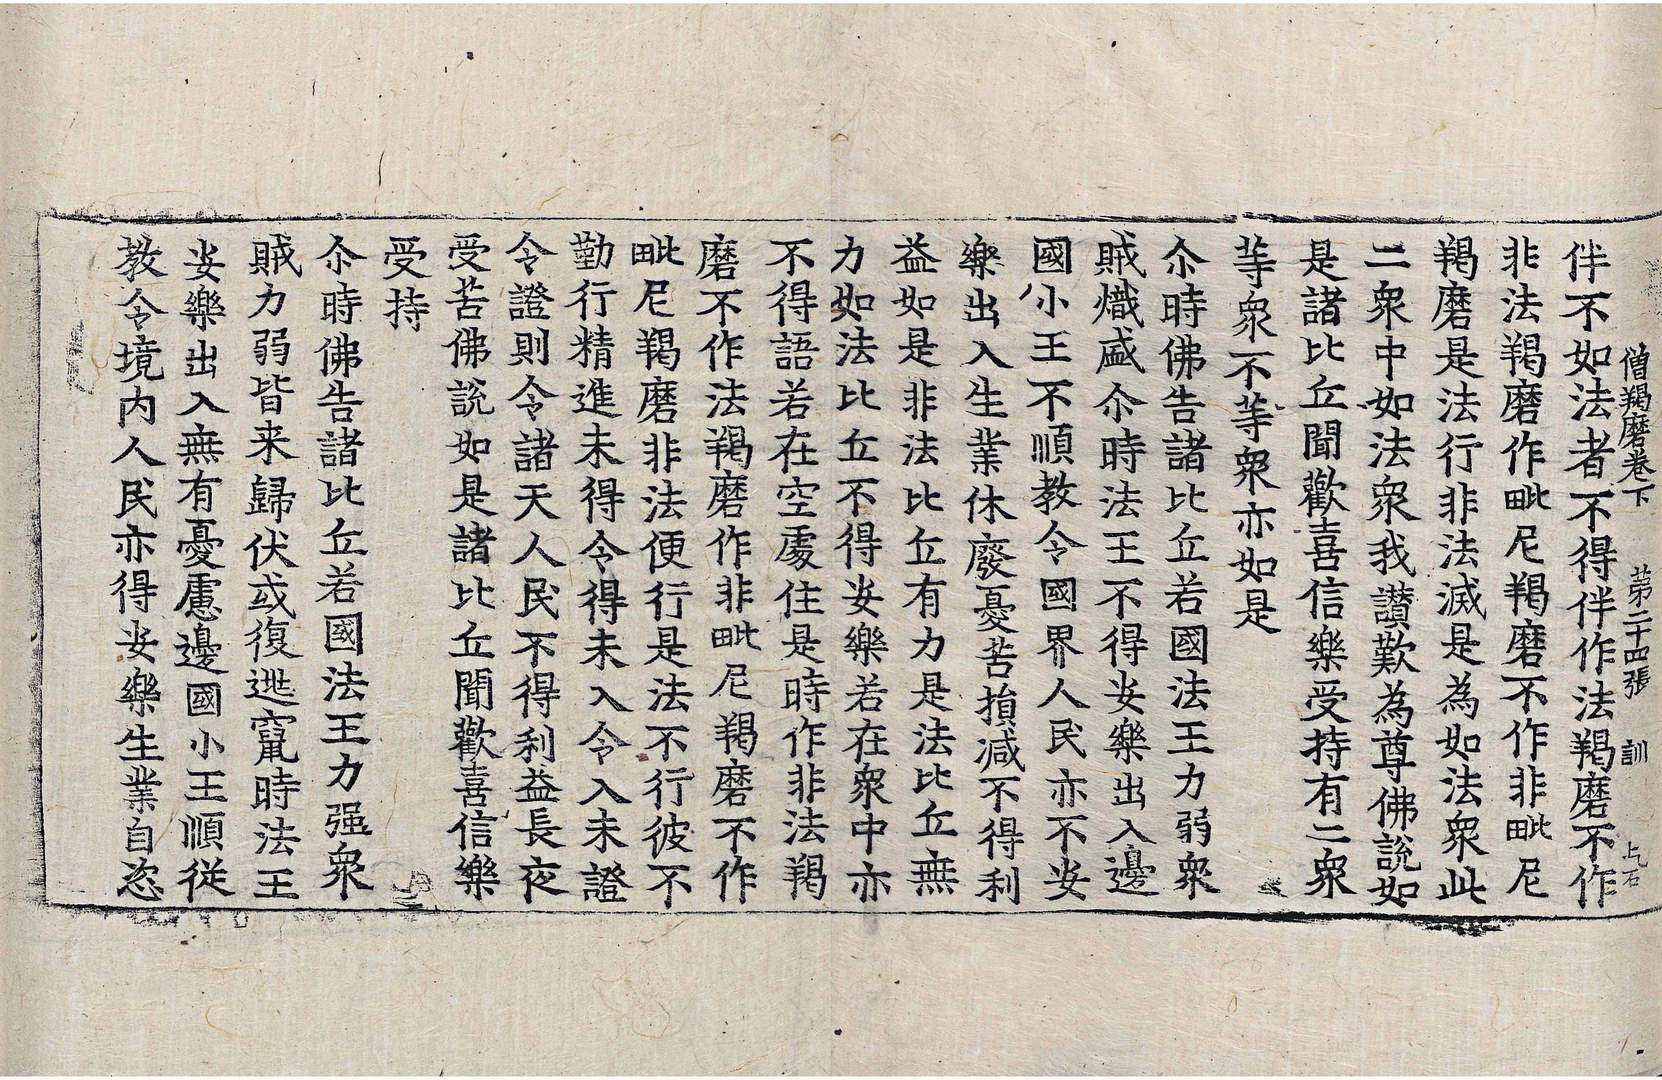 僧羯磨卷下 第二十四張 訓
伴不如法者不得伴作法羯磨不作
非法羯磨作毗尼羯磨不作非毗尼
羯磨是法行非法滅是為如法衆此
二衆中如法衆我讃歎為尊佛說如
是諸比丘聞歡喜信樂受持有二衆
等衆不等衆亦如是
尒時佛告諸比丘若國法王力弱衆
賊熾盛尒時法王不得安樂出入邊
國小王不順教令國界人民亦不安
樂出入生業休廢憂苦損減不得利
益如是非法比丘有力是法比丘無
力如法比丘不得安樂若在衆中亦
不得語若在空處住是時作非法羯
磨不作法羯磨作非毗尼羯磨不作
毗尼羯磨非法便行是法不行彼不
勤行精進未得令得未入令入未證
令證則令諸天人民不得利益長夜
受苦佛說如是諸比丘聞歡喜信樂
受持
尒時佛告諸比丘若國法王力强衆
賊力弱皆来歸伏或復逃竄時法王
安樂出入無有憂慮邊國小王順從
教令境内人民亦得安樂生業自恣